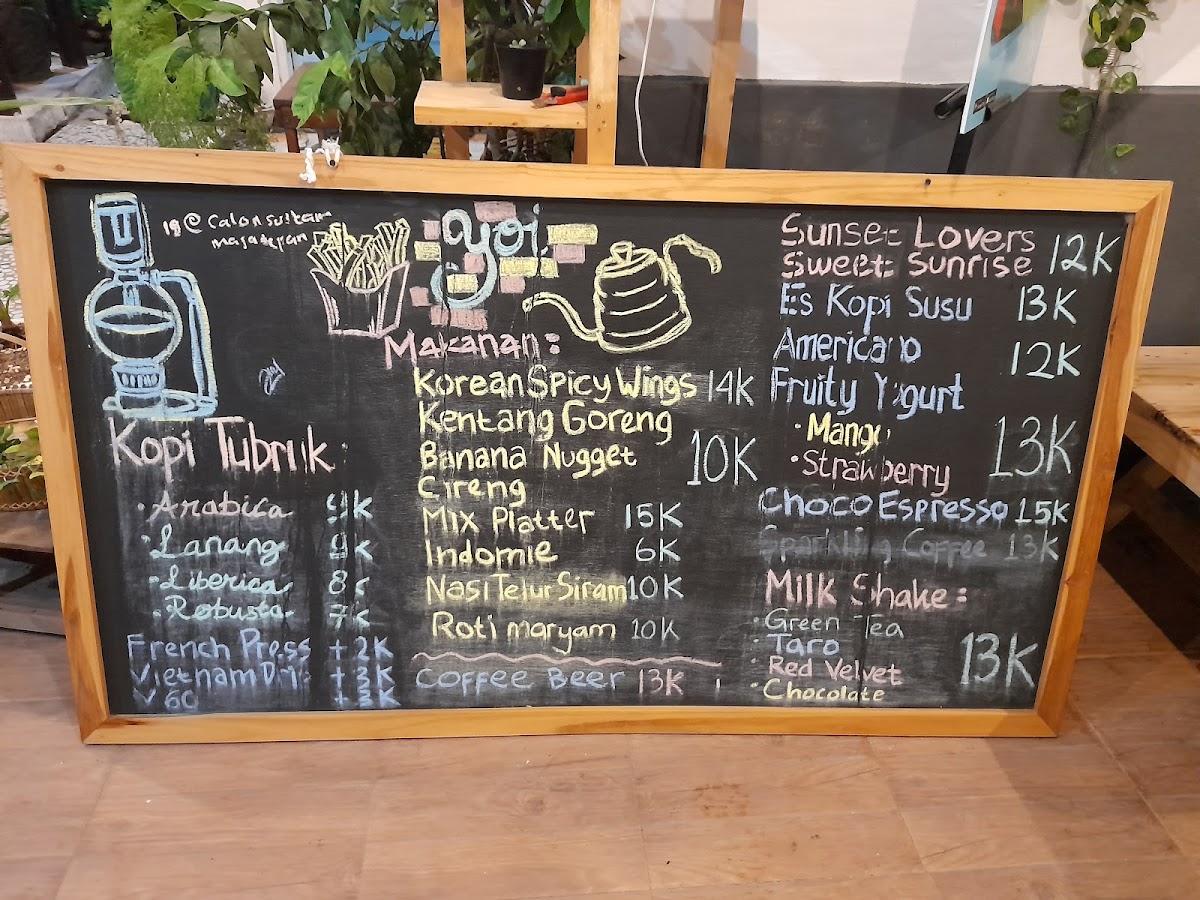 IG @ Calonsultan
majatejan
yoi
Kopi Tubruk :
• Arabica 9K
• Lanang 9K
• Liberica 8K
• Robusta 7K
French Press +2K
Vietnam Drip +3K
V60 +3K
Makanan :
Korean Spicy Wings 14K
Kentang Goreng
Banana Nugget 10K
Cireng
Mix Platter 15K
Indomie 6K
Nasi Telur Siram 10K
Roti maryam 10K
Coffee Beer 13K
Sunset Lovers
Sweet Sunrise 12K
Es Kopi Susu 13K
Americano 12K
Fruity Yogurt
• Mango 13K
• Strawberry
Choco Espresso 15K
Sparkling Coffee 13K
Milk Shake :
• Green Tea
• Taro 13K
• Red Velvet
• Chocolate